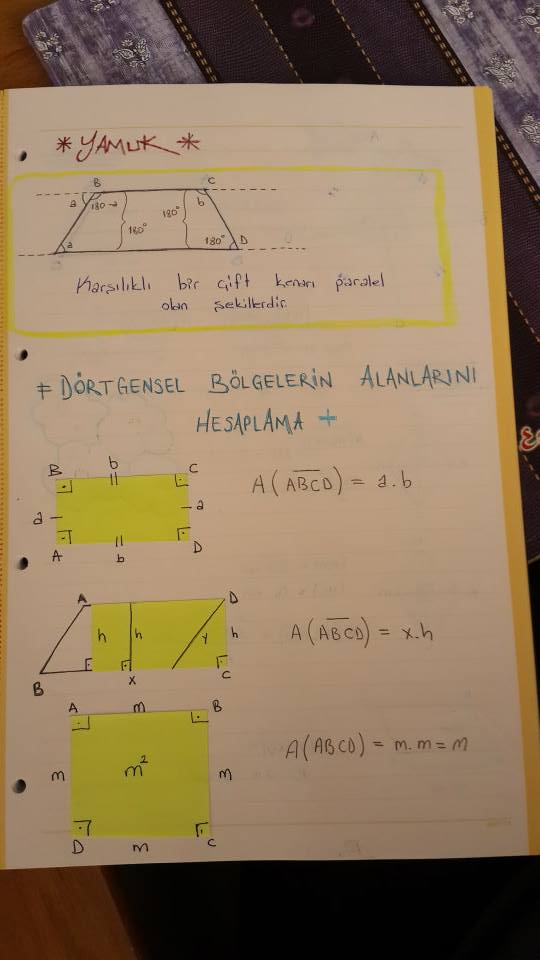 * YAMUK *
B C
a 180-a 180° b
180°
a 180° D
Karşılıklı bir çift kenarı paralel
olan şekillerdir.
# DÖRTGENSEL BÖLGELERİN ALANLARINI
HESAPLAMA +
B b C
a a
A b D
A(ABCD) = a.b
A D
h h y h
B x C
A(ABCD) = x.h
A m B
m m² m
D m C
A(ABCD) = m.m = m